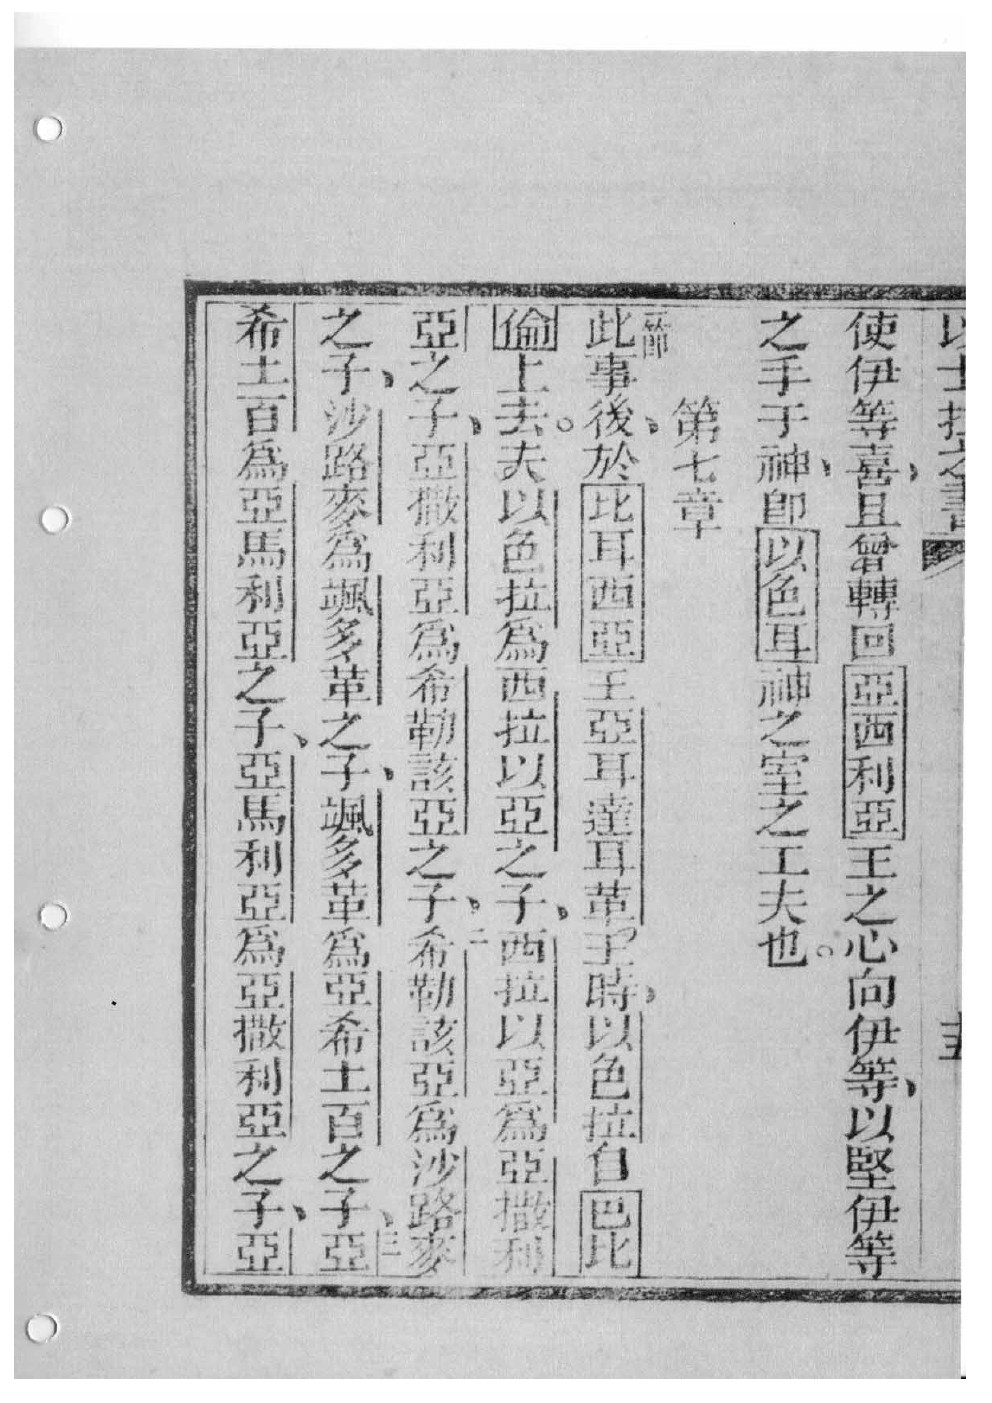 以士拉之書 十五
使伊等喜、且曾轉回亞西利亞王之心向伊等、以堅伊等
之手于神、卽以色耳神之室之工夫也。
第七章
一節此事後、於比耳西亞王亞耳達耳革王時、以色拉自巴比
倫上去。夫以色拉爲西拉以亞之子、西拉以亞爲亞撒利
亞之子、亞撒利亞爲希勒該亞之子、二希勒該亞爲沙路麥
之子、沙路麥爲颯多革之子、颯多革爲亞希土百之子、三亞
希土百爲亞馬利亞之子、亞馬利亞爲亞撒利亞之子、亞